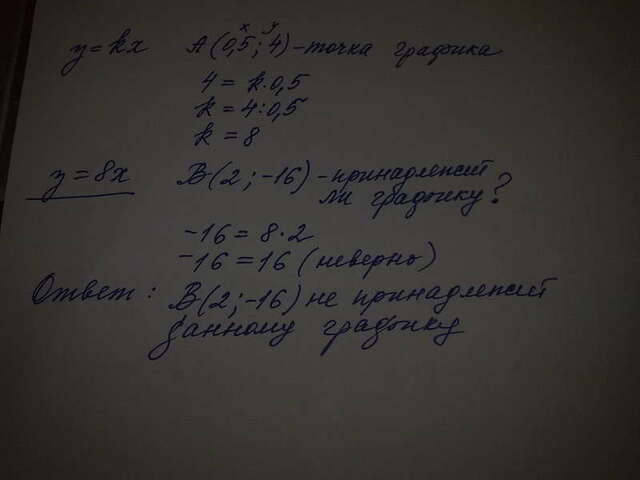 x y
y = kx A(0,5; 4) - точка графика
4 = k·0,5
k = 4:0,5
k = 8
y = 8x B(2; -16) - принадлежит
ли графику?
-16 = 8·2
-16 = 16 (неверно)
Ответ: B(2; -16) не принадлежит
данному графику